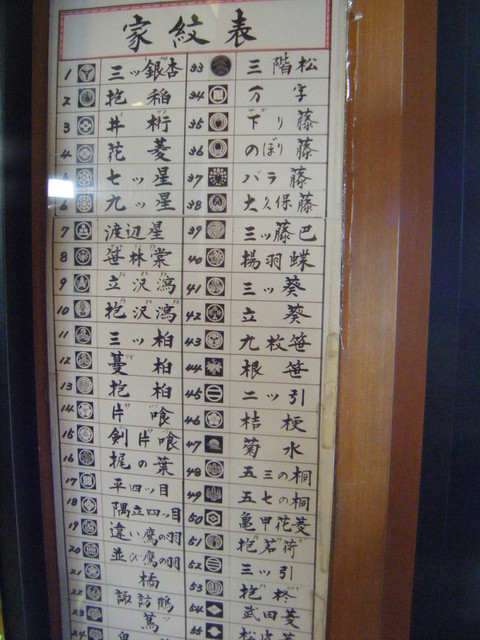 家紋表
1 三ッ銀杏
2 抱稲
3 井桁
4 花菱
5 七ッ星
6 九ッ星
7 渡辺星
8 笹林棠
9 立沢瀉
10 抱沢瀉
11 三ッ柏
12 蔓柏
13 抱柏
14 片喰
15 剣片喰
16 梶の葉
17 平四ッ目
18 隅立四ッ目
19 違い鷹の羽
20 並び鷹の羽
21 橘
22 諏訪鶴
23
24
33 三階松
34 万字
35 下り藤
36 のぼり藤
37 バラ藤
38 大久保藤
39 三ッ藤巴
40 揚羽蝶
41 三ッ葵
42 立葵
43 九枚笹
44 根笹
45 二ッ引
46 桔梗
47 菊水
48 五三の桐
49 五七の桐
50 亀甲花菱
51 抱茗荷
52 三ッ引
53 抱柊
54 武田菱
55 松皮菱